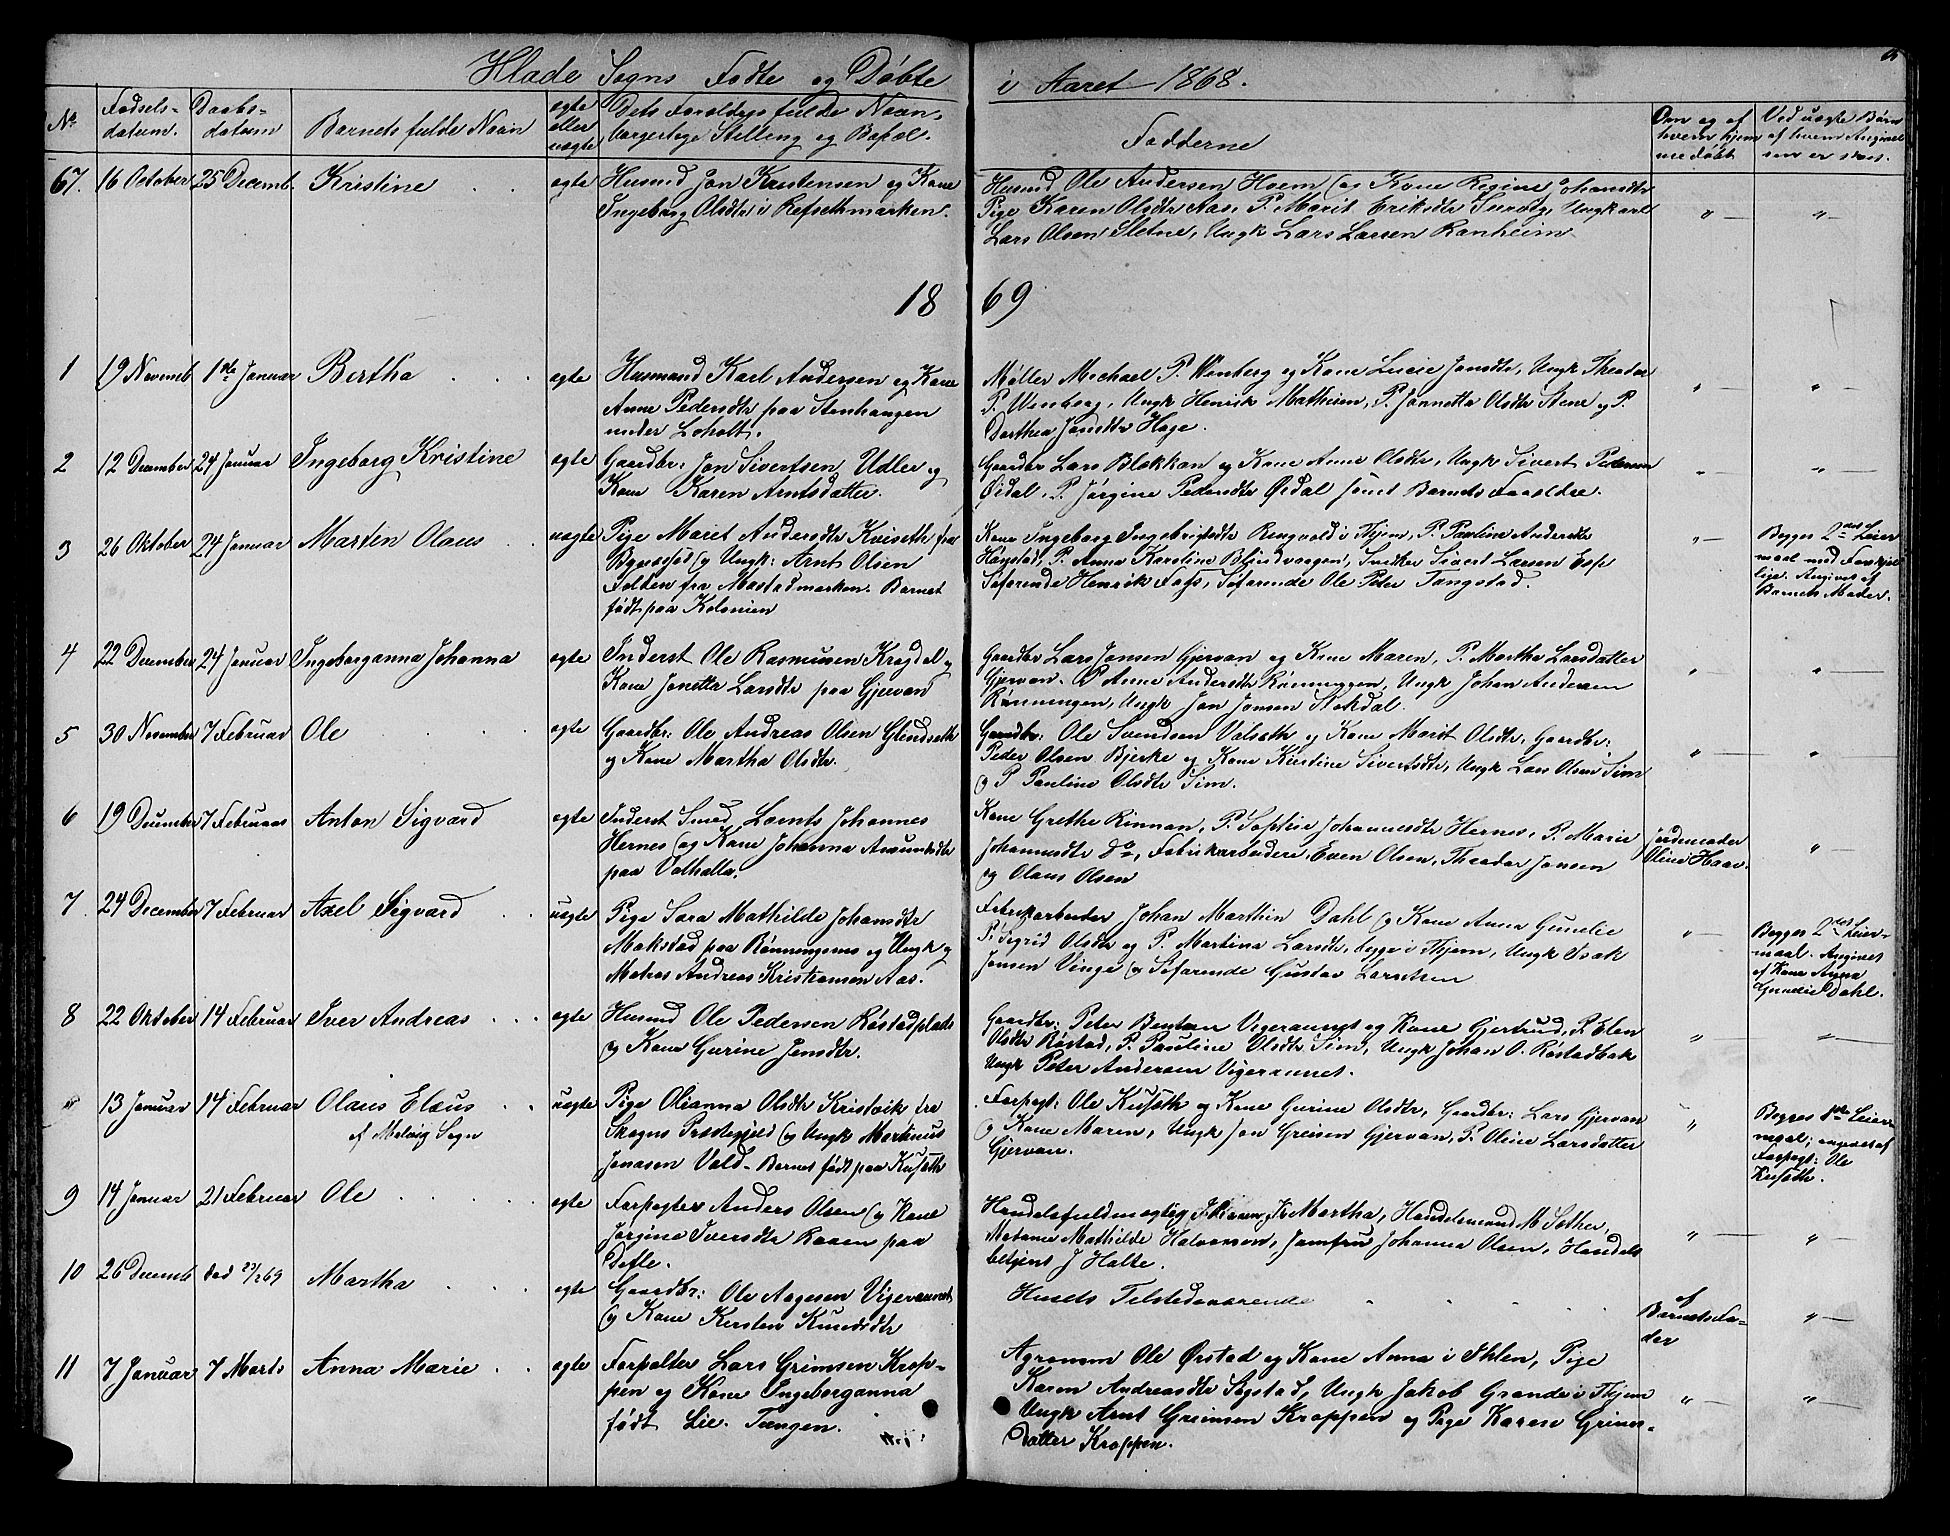 Hlade Sogns Fødte og Døbte i Aaret 1868.
No
Fødsels-
datum.
Daabs-
datum
Barnets fulde Navn
ægte
eller
uægte
Dets Forældres fulde Navn,
borgerlige Stilling og Bopæl.
Fadderne
Om og af
hvem hjem
medøbt
Ved uægte Børn
af hvem Angivel
sen er skeet.
67. 16 October 25 Decemb. Kristine ægte
Husmd Jon Kristensen og Kone
Ingeborg Olsdtr i Refsethmarken.
Husmd Ole Andersen Hoem og Kone Regine Johansdtr
Pige Karen Olsdtr Aas, P. Marit Eriksdtr, Ungkarl
Lars Olsen Sletne, Ungk Lars Larsen Ranheim
1869
1 19 Novemb 1ste Januar Bertha ægte
Husmand Karl Andersen og Kone
Anne Pedersdtr paa Stenhaugen
under Loholt.
Møller Michael P. Wenberg og Kone Lucie Jonsdtr, Ungk Theodor
P. Wenberg, Ungk Henrik Mathisen, P. Jannetta Olsdtr Stene og P.
Dorthea Jonsdtr Hage.
2 12 December 24 Januar Ingeborg Kristine ægte
Gaardbr: Jon Sivertsen Udler og
Kone Karen Arntsdatter.
Gaardbr Lars Blekkan og Kone Anne Olsdtr, Ungk Sivert Pedersen
Øidal, P. Jørgine Pedersdtr Øidal samt Barnets Forældre.
3 26 Oktober 24 Januar Martin Olaus uægte
Pige Maret Andersdtr Kvisetk fra
Byneset og Ungk: Arnt Olsen
Folden fra Mostadmarken. Barnet
født paa Kolonien
Kone Ingeborg Ingebrigtsdtr Ringvold i Thjem, P. Pauline Andersdtr
Høgstad, P. Anna Karoline Blindvaagen, Snedker Sivert Larsen Esp
Søfarende Henrik Foss, Søfarende Ole Peter Tangstad.
Begges 2det Leier
maal med Forskjel
lige. Angivet af
Barnets Moder.
4 22 December 24 Januar Ingeborganna Johanna ægte
Inderst Ole Rasmusen Krogdal og
Kone Jonetta Larsdtr paa Gjervan
Gaardbr Lars Jonsen Gjervan og Kone Maren, P. Martha Larsdatter
Gjervan. P Anne Andersdtr Rønningen, Ungk Johan Andersen
Rønningen, Ungk Jon Jonsen Stokdal.
5 30 November 7 Februar Ole ægte
Gaardbr: Ole Andreas Olsen Glindseth
og Kone Martha Olsdtr.
Gaardbr: Ole Svendsen Valseth og Kone Marit Olsdtr, Gaardbr:
Peder Olsen Bjerke og Kone Kirstine Sivertsdtr, Ungk Lars Olsen Sim
og P Pauline Olsdtr Sim.
6 19 December 7 Februar Anton Sigvard ægte
Inderst Smed Lornts Johannes
Hernes og Kone Johanna Amundsdtr
paa Valhalla.
Kone Grethe Rinnan, P. Sophie Johannesdtr Hernes, P. Marie
Johannesdtr do, Fabrikarbeidere, Even Olsen, Theodor Jonsen
og Olaus Olsen
Jordemoder
Oline Haav.
7. 24 December 7 Februar Axel Sigvard uægte
Pige Sara Mathilde Johansdtr
Mokstad paa Rønningene og Ungk og
Matros Andreas Kristiansen Aas.
Fabrikarbeider Johan Marthin Dahl og Kone Anna Gunelie
P. Sigrid Olsdtr og P. Martina Larsdtr, begge i Thjem, Ungk Isak
Jensen Vinge og Søfarende Gustav Lorntsen
Begges 2det Leier-
maal. Angivet
af Kone Anna
Gunelie Dahl.
8 22 Oktober 14 Februar Iver Andreas ægte
Husmd Ole Pedersen Røstadplads
og Kone Gurine Jensdtr.
Gaardbr: Peter Bentsen Vigeraunet og Kone Gjertrud, P. Elen
Olsdtr Røstad, P. Pauline Olsdtr Sim, Ungk Johan O. Røstadbak
Ungk Peter Andersen Vigeraunet.
" 13 Januar 14 Februar Olaus Elaus uægte
af Malvig Sogn
Pige Olianna Olsdtr Kristvik fra
Skogns Præstegjeld og Ungk Martinus
Jonasen Vold - Barnet født paa Kusæth
Forpagt: Ole Kusæth og Kone Gurine Olsdtr, Gaardbr: Lars Gjervan
og Kone Maren, Ungk Jon Greisen Gjervan, P. Oline Larsdatter
Gjervan.
Begges 1ste Leier
maal; angivet af
Forpagt: Ole
Kusæth.
9 14 Januar 21 Februar Ole ægte
Forpagter Anders Olsen og Kone
Jørgine Iversdtr Raaen paa
Defle.
Handelsfuldmægtig og Kone Martha, Handelsmand M Sother,
Madame Mathilde Halvorsen, Jomfru Johanna Olsen, Handels
betjent J Holte.
10 26 Decemb død 27/2 69 Martha ægte
Gaardbr: Ole Aagesen Vigeraunet
og Kone Kersten Knudsdtr
Husets Tilstedeværende
af
Barnets Fa-
der
11 7 Januar 7 Marts Anna Marie ægte
Forpakter Lars Grimsen Krop-
pen og Kone Ingeborganna
født Lie. Tungen.
Agronom Ole Ørstad og Kone Anna i Ihlen, Pige
Karen Andreasdtr Sogstad, Ungk Jakob Grande i Thjem
Ungk Arnt Grimsen Kroppen og Pige Karen Grims-
datter Kroppen.